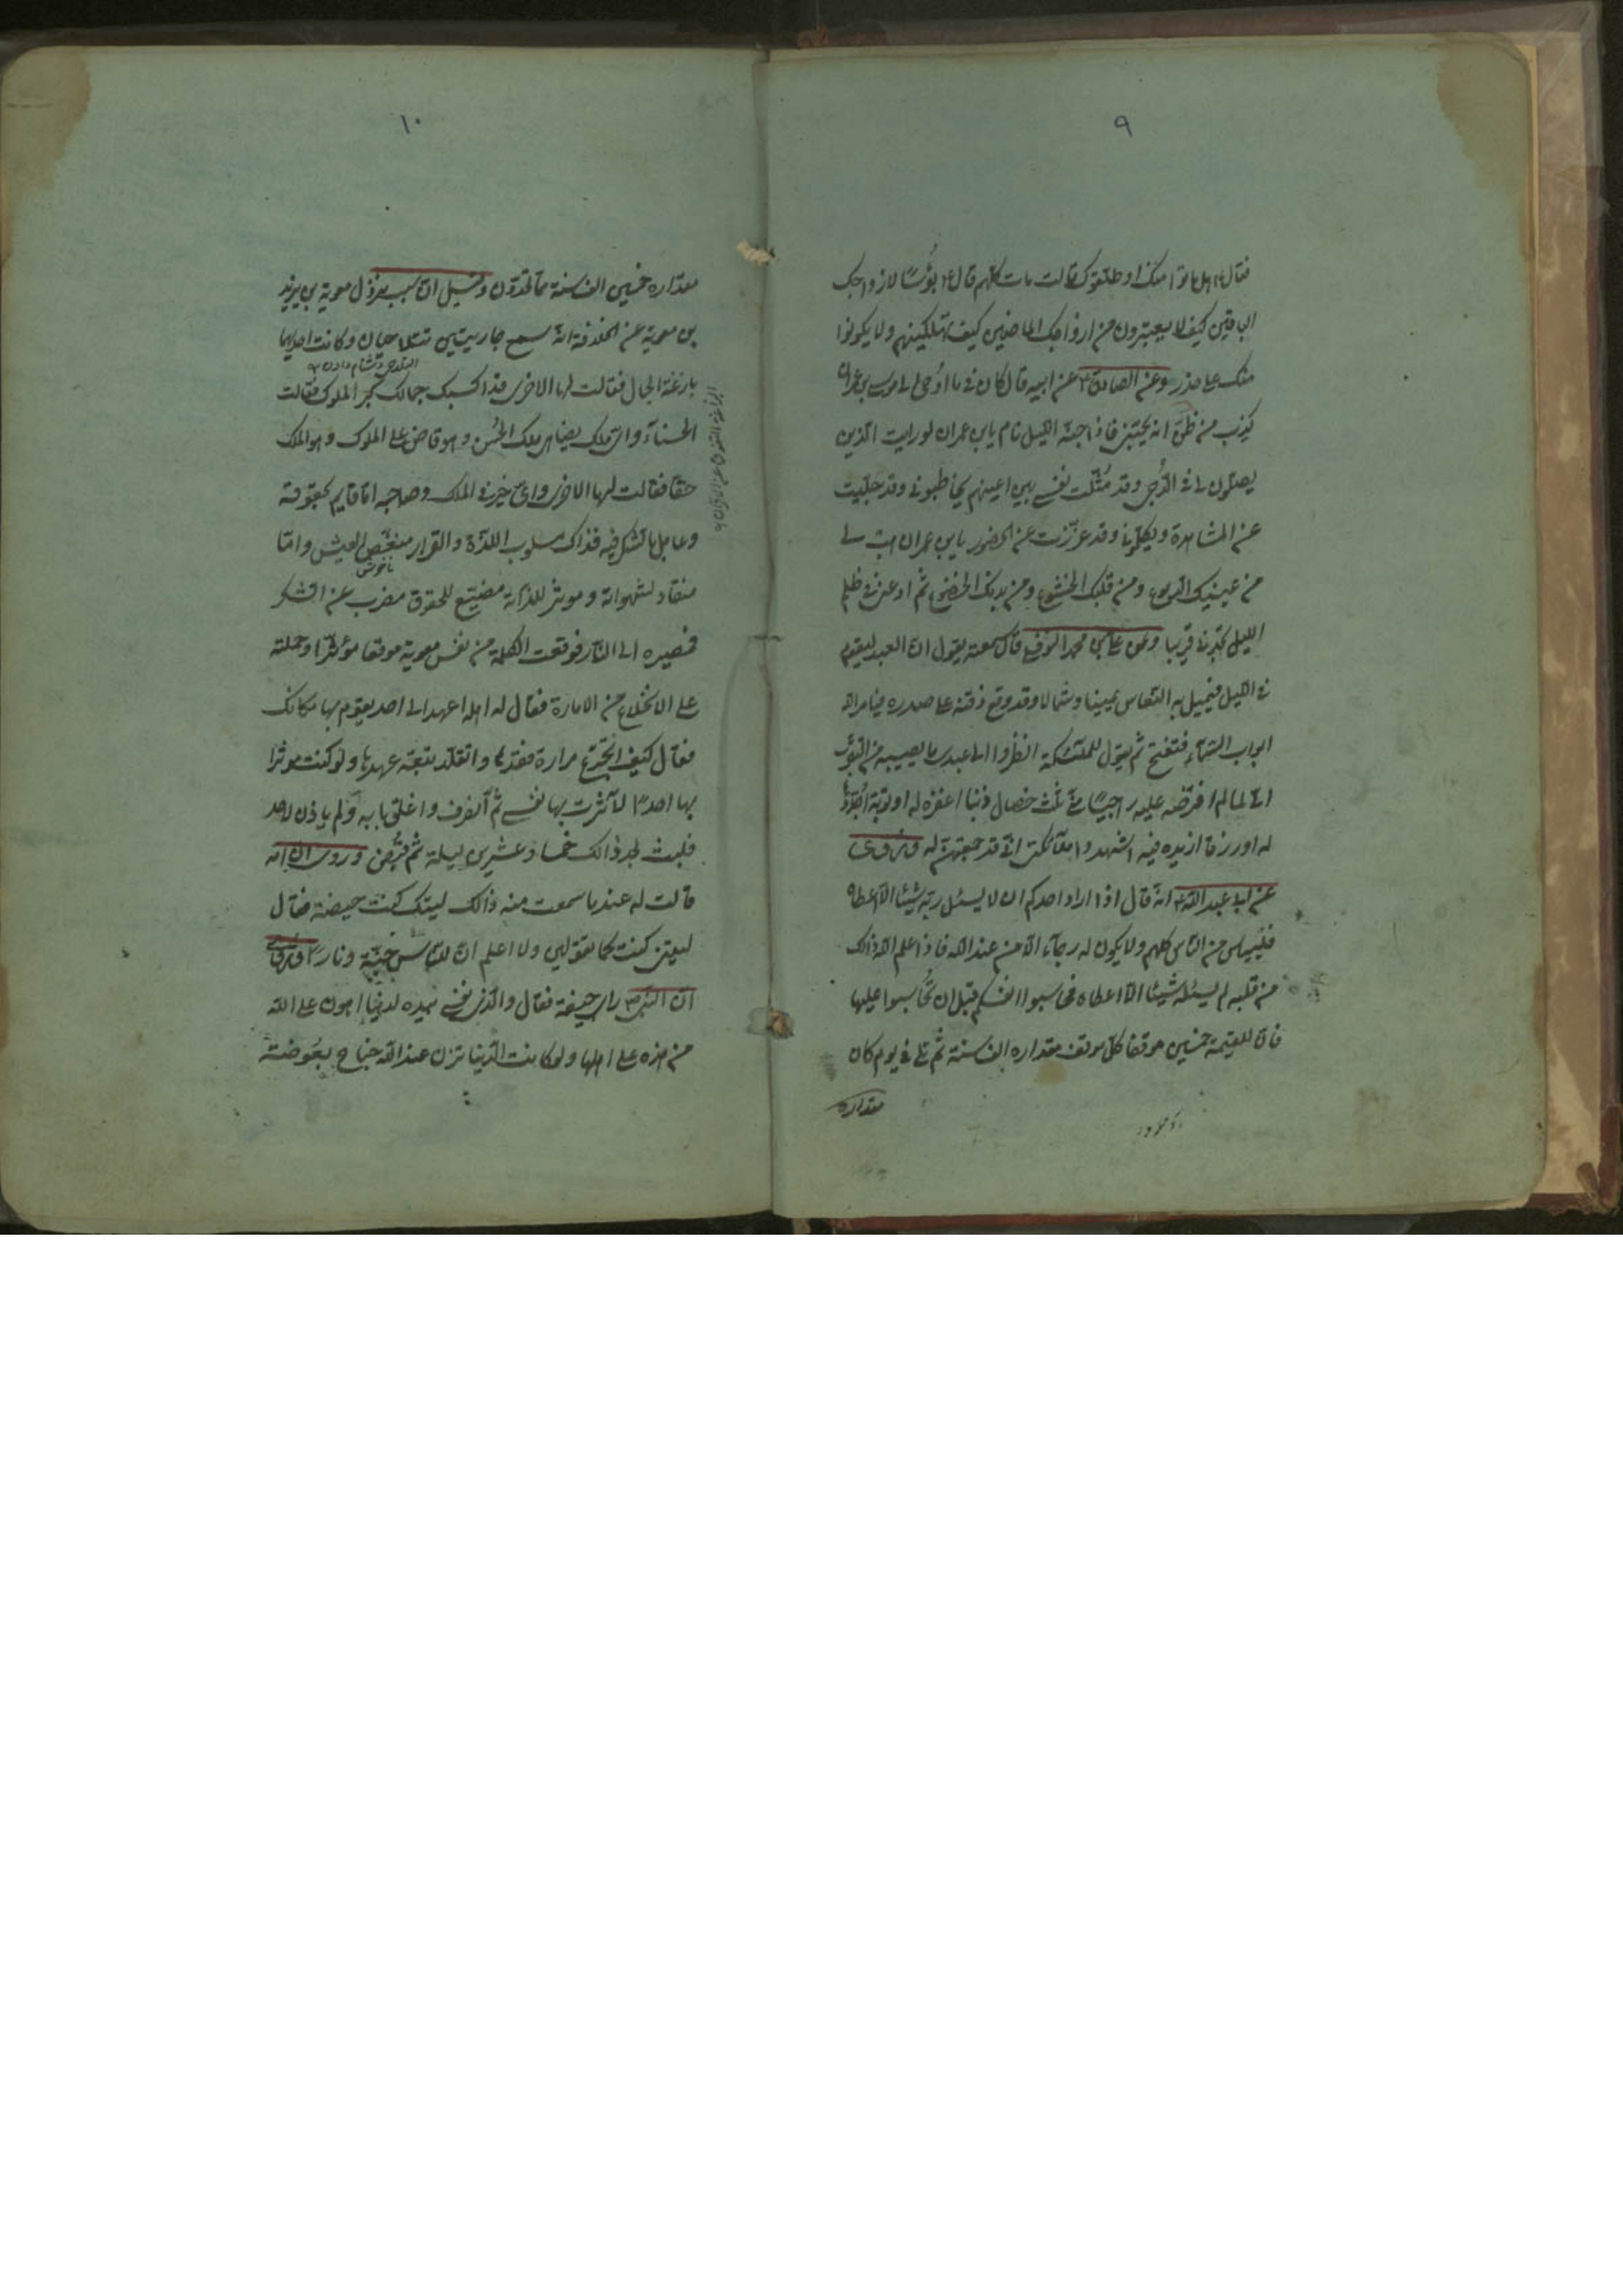 ٩
فقال ع هل ماتوا منك او طلقوك قالت مات كلهم قال ع بؤسًا لازواجك
الباقين كيف لا يعتبرون من ازواجك الماضين كيف تهلكينهم ولا يكونوا
منك على حذر وعن الصادق ع عن ابيه قال كان فى ما اوحى الى موسى بن عمران
كذب من ظن انه يحبنى فاذا جنه الليل نام يابن عمران لو رايت الذين
يصلون لى فى الدجى وقد مثلت نفسى بين اعينهم يخاطبونى وقد جلبت
عن المشاهدة ويكلمونا وقد عززت عن الحضور يابن عمران هب لى
من عينيك الدموع ومن قلبك الخشوع ومن بدنك الخضوع ثم ادعنى فى ظلم
الليل تجدنى قريبا وعن على بن محمد النوفلى قال سمعته يقول ان العبد ليقوم
فى الليل فيميل به النعاس يمينا وشمالا وقد وقع ذقنه على صدره فيامر الله
ابواب السماء فتفتح ثم يقول للملئكة انظروا الى عبدى ما يصيبه من التقرب
الى لما لم افرضه عليه راجيًا منى ثلث خصال ذنبا اغفره له او توبة اجددها
له او رزقا ازيده فيه اشهدوا ملائكتى انى قد جمعتهن له وروى
عن ابى عبد الله ع انه قال اذا اراد احدكم ان لا يسئل ربه شيئا الا اعطاه
فلييأس من الناس كلهم ولا يكون له رجاء الا من عند الله فاذا علم الله ذالك
من قلبه لم يسئله شيئا الا اعطاه فحاسبوا انفسكم قبل ان تحاسبوا عليها
فان للقيمة خمسين موقفا كل موقف مقداره الف سنة ثم تلى فى يوم كان
مقداره
١٠
مقداره خمسين الف سنة مما تعدون وقيل ان سبب عزل معوية بن يزيد
بن معوية عن الخلافة انه سمع جاريتين تتلاحيان وكانت احديهما
بارعة الجمال فقالت لها الاخرى قد اكسبك جمالك كبر الملوك فقالت
الحسناء واى ملك يضاهى ملك الحسن وهو قاض على الملوك وهو الملك
حقا فقالت لها الاخرى واى خير فى الملك وصاحبه اما قايم بحقوقه
وعامل بالشكر فيه فذاك مسلوب اللذة والقرار منغص العيش واما
ناخوش
منقاد لشهواته وموثر للذاته مضيع للحقوق مضرب عن الشكر
فمصيره الى النار فوقعت الكلمة من نفس معوية موقعا مؤثرا وحملته
على الانخلاع من الامارة فقال له اهله اعهد الى احد يقوم بها مكانك
فقال كيف اتجرع مرارة فقدها واتقلد تبعة عهدها ولو كنت موثرا
بها احدًا لآثرت بها نفسى ثم انصرف واغلق بابه ولم ياذن لاحد
فلبث بعد ذالك خمسا وعشرين ليلة ثم قبض وروى ان امه
قالت له عند ما سمعت منه ذالك ليتك كنت حيضة فقال
ليتنى كنت كما تقولين ولا اعلم ان للناس جنة ونارا وروى
ان النبى ص راى جيفة فقال والذى نفسى بيده لدنيا اهون على الله
من هذه على اهلها ولو كانت الدنيا تزن عند الله جناح بعوضة